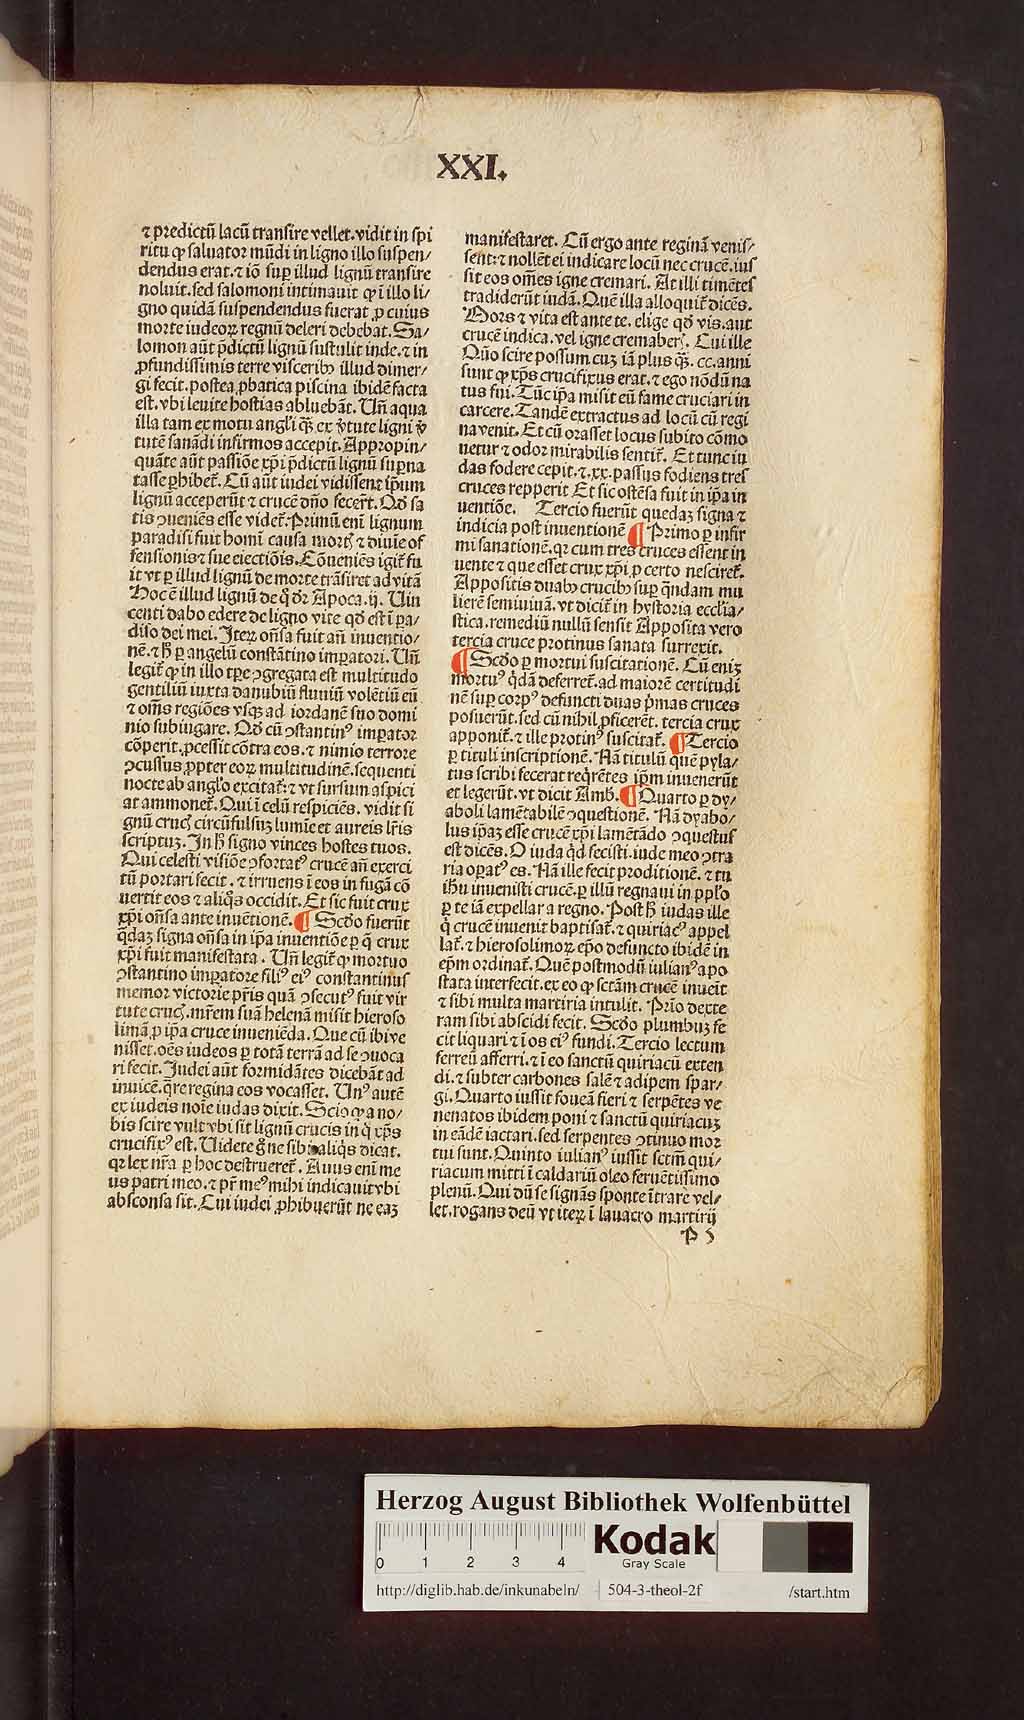 XXI.
⁊ predictū lacū transire vellet. vidit in spi
ritu ꝙ saluator mūdi in ligno illo suspen/
dendus erat. ⁊ iō sup̱ illud lignū transire
noluit. sed salomoni intimauit ꝙ ī illo li/
gno quidā suspendendus fuerat ꝓ cuius
morte iudeoꝝ regnū deleri debebat. Sa/
lomon aūt p̄dictū lignū sustulit inde. ⁊ in
ꝓfundissimis terre visceribꝰ illud dimer/
gi fecit. postea ꝓbatica piscina ibidē facta
est. vbi leuite hostias abluebāt. Uñ aqua
illa tam ex motu angli q̄ꝫ ex v̄tute ligni v̄
tutē sanādi infirmos accepit. Appropin/
quāte aūt passiōe xp̄i p̄dictū lignū sup̱na
tasse ꝑhibet̄. Cū aūt iudei vidissent ip̄um
lignū acceperūt ⁊ crucē dn̄o fecer̄t. Qd̄ sa
tis ↄueniēs esse videt̄. Primū eni lignum
paradisi fuit homī causa mortꝭ ⁊ diuīe of
fensionis ⁊ sue eiectiōis. Cōueniēs igit̄ fu
it vt ꝑ illud lignū de morte trāsiret ad vitā
Hoc ē illud lignū de q̄ dr̄ Apoca. ij. Uin
centi dabo edere de ligno vite qd̄ est ī pa/
diso dei mei. Iteꝝ on̄sa fuit añ inuentio/
nē. ⁊ h̄ ꝑ angelū constātino imꝑatori. Uñ
legit̄ ꝙ in illo tꝑe ↄgregata est multitudo
gentiliū iuxta danubiū fluuiū volētiū eū
⁊ om̄s regiōes vsqꝫ ad iordanē suo domi
nio subiugare. Qd̄ cū ↄstantinꝰ imꝑator
cōperit. ꝓcessit cōtra eos. ⁊ nimio terrore
ↄcussus ꝓpter eoꝝ multitudinē. sequenti
nocte ab anglo excitat̄. ⁊ vt sursum aspici
at ammonet̄. Qui ī celū respiciēs. vidit si
gnū crucꝭ circūfulsuꝫ lumīe et aureis lr̄is
scriptuꝫ. In h̄ signo vinces hostes tuos.
Qui celesti visiōe ↄfortatꝰ crucē añ exerci
tū portari fecit. ⁊ irruens ī eos in fugā cō
uertit eos ⁊ aliq̄s occidit. Et sic fuit crux
xp̄i on̄sa ante inuētionē. ¶ Scd̄o fuerūt
q̄daꝫ signa on̄sa in ip̄a inuentiōe ꝑ q̄ crux
xp̄i fuit manifestata. Uñ legit̄ ꝙ mortuo
ↄstantino imꝑatore filiꝰ eiꝰ constantinus
memor victorie pr̄is quā ↄsecutꝰ fuit vir
tute crucꝭ. mr̄em suā helenā misit hieroso
limā ꝓ ip̄a cruce inueniēda. Que cū ibi ve
nisset. oēs iudeos ꝑ totā terrā ad se ↄuoca
ri fecit. Iudei aūt formidātes dicebāt ad
inuicē. q̄re regina eos vocasset. Unꝰ autē
ex iudeis noīe iudas dixit. Scio ꝙ a no/
bis scire vult vbi sit lignū crucis in q̄ xp̄s
crucifixꝰ est. Uidete g̊ ne sibi aliq̄s dicat.
qꝛ lex nr̄a ꝑ hoc destrueret̄. Auus eni me
us patri meo. ⁊ pr̄ meꝰ mihi indicauit vbi
absconsa sit. Cui iudei ꝓhibuerūt ne eaꝫ
manifestaret. Cū ergo ante reginā venis/
sent. ⁊ nollēt ei indicare locū nec crucē. ius
sit eos om̄es igne cremari. At illi timētes
tradiderūt iudā. Quē illa alloquit̄ dicēs.
Mors ⁊ vita est ante te. elige qd̄ vis. aut
crucē indica. vel igne cremaberꝭ. Cui ille
Quō scire possum cuꝫ iā plus q̄ꝫ .cc. anni
sunt ꝙ xp̄s crucifixus erat. ⁊ ego nōdū na
tus fui. Tūc ip̄a misit eū fame cruciari in
carcere. Tandē extractus ad locū cū regi
na venit. Et cū orasset locus subito cōmo
uetur ⁊ odor mirabilis sentit̄. Et tunc iu
das fodere cepit. ⁊ .xx. passus fodiens tres
cruces repperit Et sic ostēsa fuit in ip̄a in
uentiōe. Tercio fuerūt quedaꝫ signa ⁊
indicia post inuentionē ¶ Primo ꝑ infir
mi sanationē. qꝛ cum tres cruces essent in
uente ⁊ que esset crux xp̄i ꝓ certo nesciret̄.
Appositis duabꝰ crucibꝰ sup̱ q̄ndam mu
lierē semiuiuā. vt dicit̄ in hystoria eccl̄ia/
stica. remediū nullū sensit Apposita vero
tercia cruce protinus sanata surrexit.
¶ Scd̄o ꝑ mortui suscitationē. Cū eniꝫ
mortuꝰ q̄dā deferret̄. ad maiorē certitudi
nē sup̱ corpꝰ defuncti duas p̄mas cruces
posuerūt. sed cū nihil ꝓficerēt. tercia crux
apponit̄. ⁊ ille protinꝰ suscitat̄. ¶ Tercio
ꝑ tituli inscriptionē. Nā titulū quē pyla/
tus scribi fecerat req̄rētes ip̄m inuenerūt
et legerūt. vt dicit Amb. ¶ Quarto ꝑ dy/
aboli lamētabilē ↄquestionē. Nā dyabo/
lus ip̄aꝫ esse crucē xp̄i lamētādo ↄquestus
est dicēs. O iuda q̄d fecisti. iude meo ↄtra
ria oꝑatꝰ es. Nā ille fecit proditionē. ⁊ tu
ih̄u inuenisti crucē. ꝑ illū regnaui in pplo
ꝑ te iā expellar a regno. Post h̄ iudas ille
q̄ crucē inuenit baptisat̄. ⁊ quiriacꝰ appel
lat̄. ⁊ hierosolimoꝝ ep̄o defuncto ibidē in
ep̄m ordinat̄. Quē postmodū iulianꝰ apo
stata interfecit. ex eo ꝙ sctām crucē inueīt
⁊ sibi multa martiria intulit. Prīo dexte
ram sibi abscidi fecit. Scd̄o plumbuꝫ fe
cit liquari ⁊ ī os eiꝰ fundi. Tercio lectum
ferreū afferri. ⁊ ī eo sanctū quiriacū exten
di. ⁊ subter carbones salē ⁊ adipem spar/
gi. Quarto iussit foueā fieri ⁊ serpētes ve
nenatos ibidem poni ⁊ sanctū quiriacuꝫ
in eādē iactari. sed serpentes ↄtinuo mor
tui sunt. Quinto iulianꝰ iussit sctm̄ qui/
riacum mitti ī caldariū oleo feruētissimo
plenū. Qui dū se signās sponte ītrare vel/
let. rogans deū vt iteꝝ ī lauacro martirij
Herzog August Bibliothek Wolfenbüttel
0 1 2 3 4
Kodak
Gray Scale
http://diglib.hab.de/inkunabeln/ 504-3-theol-2f /start.htm